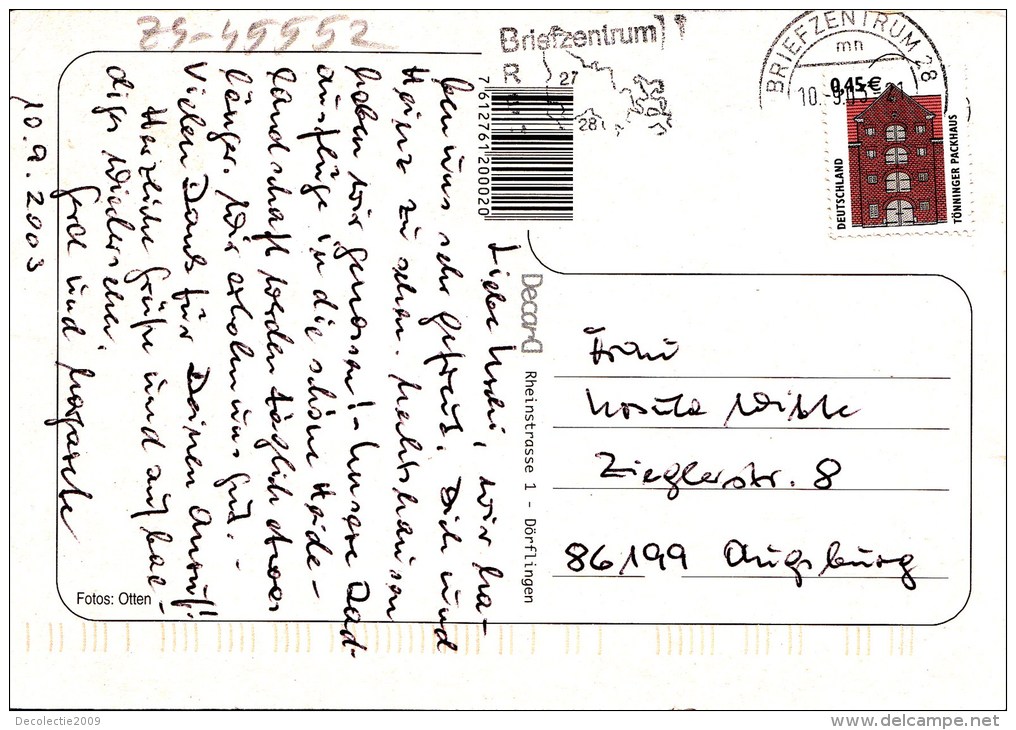 Z9-45552
Briefzentrum
R 27
28
BRIEFZENTRUM 28
mn
10.-9.03-21
0,45 €
DEUTSCHLAND
TÖNNINGER PACKHAUS
7612761200020
10.9.2003
Liebe Uschi, wir ha-
ben uns sehr gefreut, Dich und
Heinz zu sehen.
haben wir genossen! - Unsere Rad-
ausflüge in die schöne Heide-
landschaft werden täglich etwas
länger. Wir erholen uns gut. -
Vielen Dank für Deinen Anruf!
Herzliche Grüße und auf bal-
diges Wiedersehen.
Gerd und Margarete
Decard
Rheinstrasse 1 - Dörflingen
Frau
Zieglerstr. 8
86199 Augsburg
Fotos: Otten
Decolectie2009
www.delcampe.net